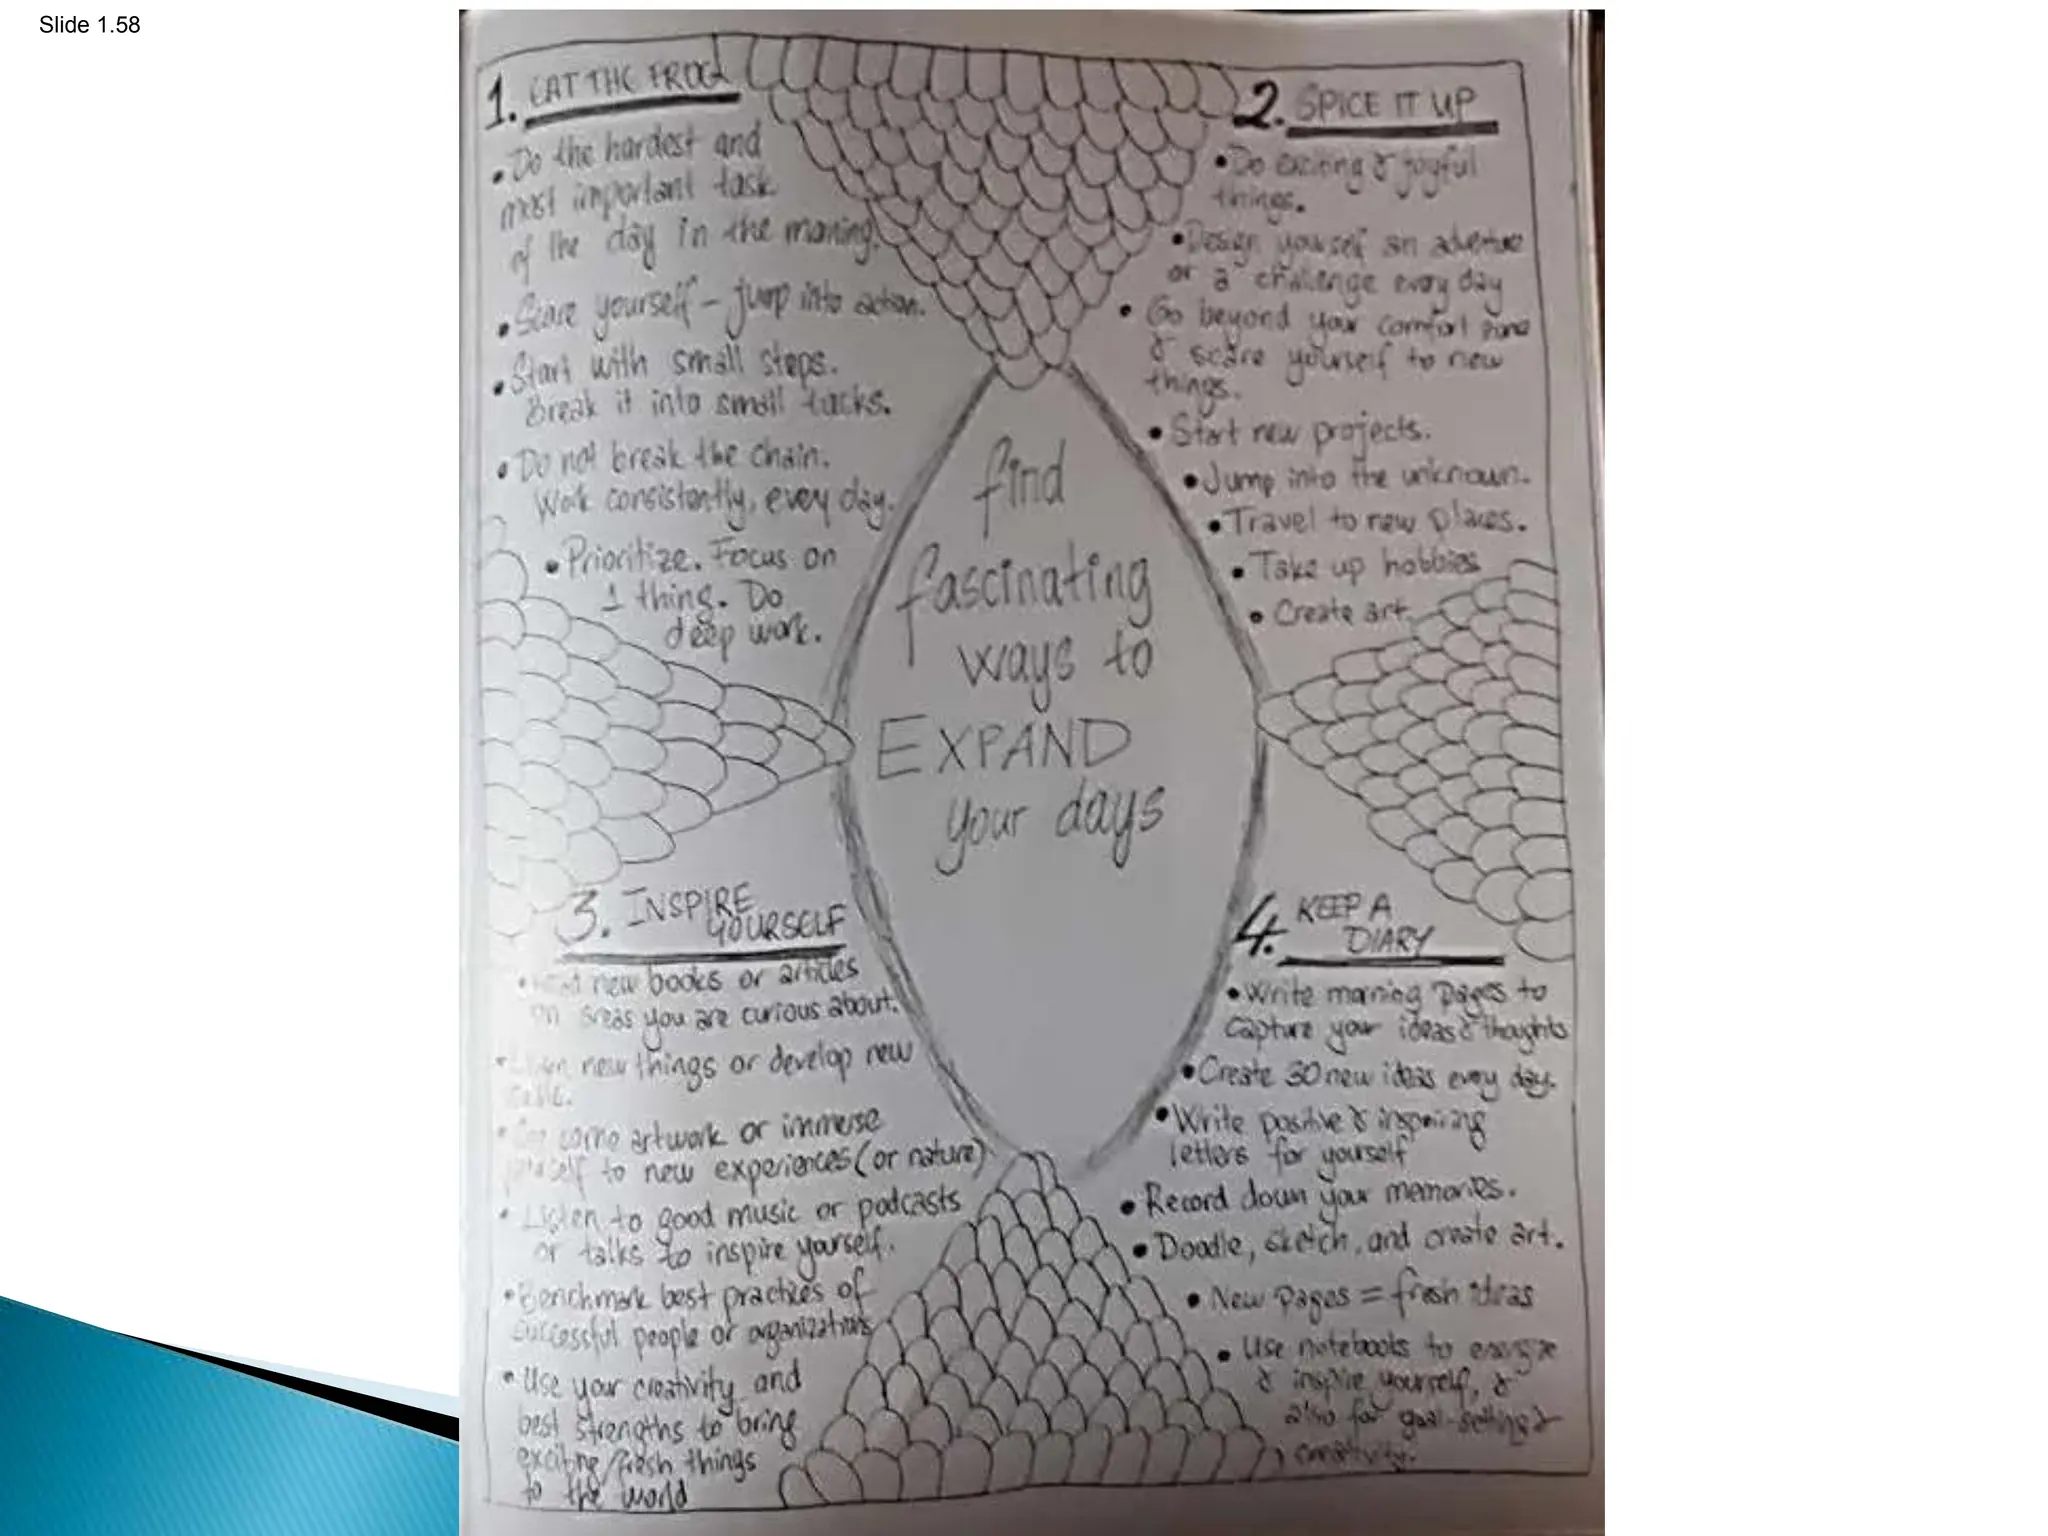 Slide 1.58
1. EAT THE FROG
• Do the hardest and
most important task
of the day in the morning.
• Scare yourself – jump into action.
• Start with small steps.
Break it into small tacks.
• Do not break the chain.
Work consistently, every day.
• Prioritize. Focus on
1 thing. Do
deep work.
2. SPICE IT UP
• Do exciting & joyful
things.
• Design yourself an adventure
or a challenge every day
• Go beyond your comfort zone
& scare yourself to new
things.
• Start new projects.
• Jump into the unknown.
• Travel to new places.
• Take up hobbies
• Create art.
find
fascinating
ways to
EXPAND
your days
3. INSPIRE
YOURSELF
• new books or articles
on areas you are curious about.
• new things or develop new
• some artwork or immerse
to new experiences (or nature)
• Listen to good music or podcasts
or talks to inspire yourself.
• Benchmark best practices of
successful people or organizations
• Use your creativity and
best strengths to bring
exciting/fresh things
to the world
4. KEEP A
DIARY
• Write morning pages to
capture your ideas & thoughts
• Create 30 new ideas every day.
• Write positive & inspiring
letters for yourself
• Record down your memories.
• Doodle, sketch, and create art.
• New pages = fresh ideas
• Use notebooks to energize
& inspire yourself, &
also for goal-setting &
creativity.